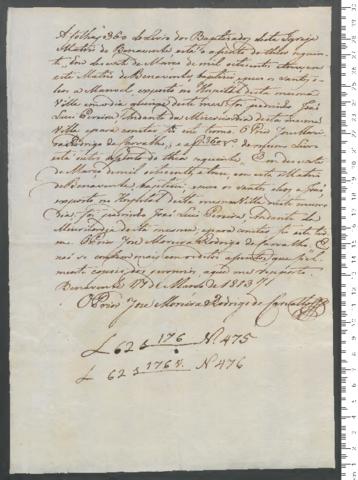 A folhas 360 do Livro dos Baptizados desta Igreja
Matriz de Benavente está o assento do theor seguin-
te, dos desasete de Março de mil oitocentos e treze, em
esta Matriz de Benavente, baptizei, e puz os santos o-
leos a Manoel exposto no Hospital desta mesma
Villa em o dia quinze deste mes: foi padrinho José
Luis Pereira, Andante da Mizericordia desta mesma
Villa, e para constar fiz este termo. O Prior Jose Morei-
ra Rodrigo de Carvalho, e a f. 360 v. do mesmo Livro
está outro assento do theor seguinte, Em desasete
de Março de mil oitocentos e treze, em esta Matriz
de Benavente, baptizei, e puz os santos oleos a José
exposto no Hospital desta mesma Villa neste mesmo
dia, foi padrinho José Luis Pereira, Andante da
Mizericordia desta mesma, e para constar fiz este ter-
mo. O Prior Jose Moreira Rodrigo de Carvalho, E
não se continha mais em os ditos assentos, que fiel-
mente copiei dos proprios, aque me reporto.
Benavente 17 de Março de 1813
O Prior Jose Moreira Rodrigo de Carvalho
L 62 s 176 N. 475
L 62 s 176 v. N 476